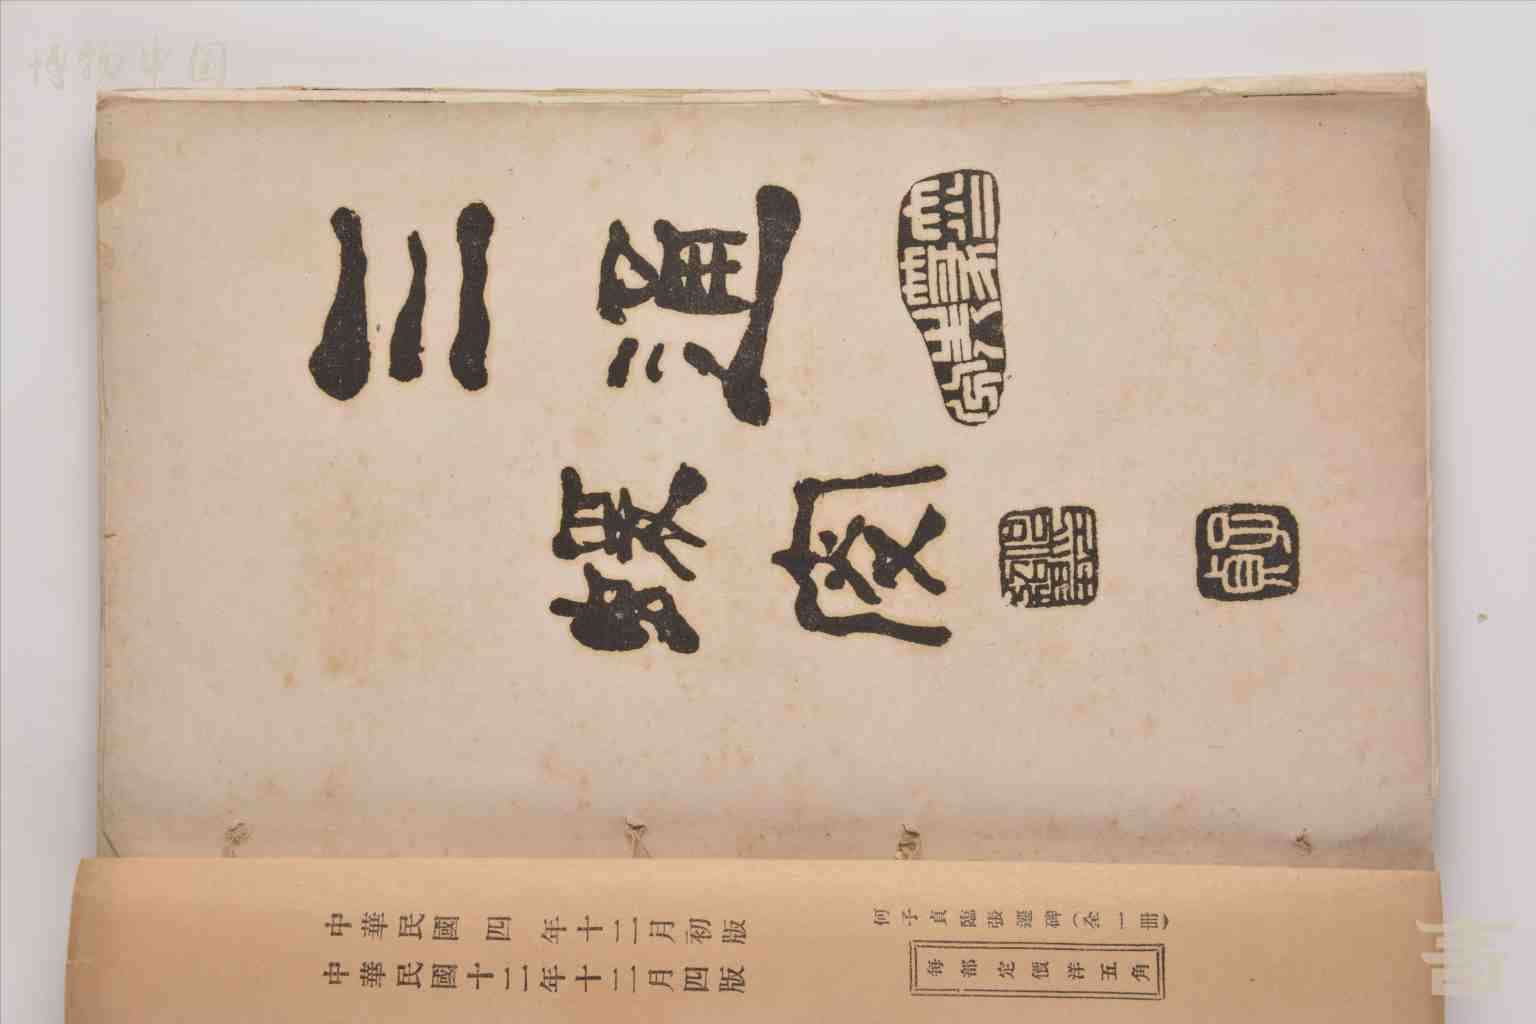 三通
蝯叜
何紹基印
子貞
中華民國四年十二月初版
中華民國十二年十二月四版
何子貞臨張遷碑（全一冊）
每部定價洋五角
博物中国